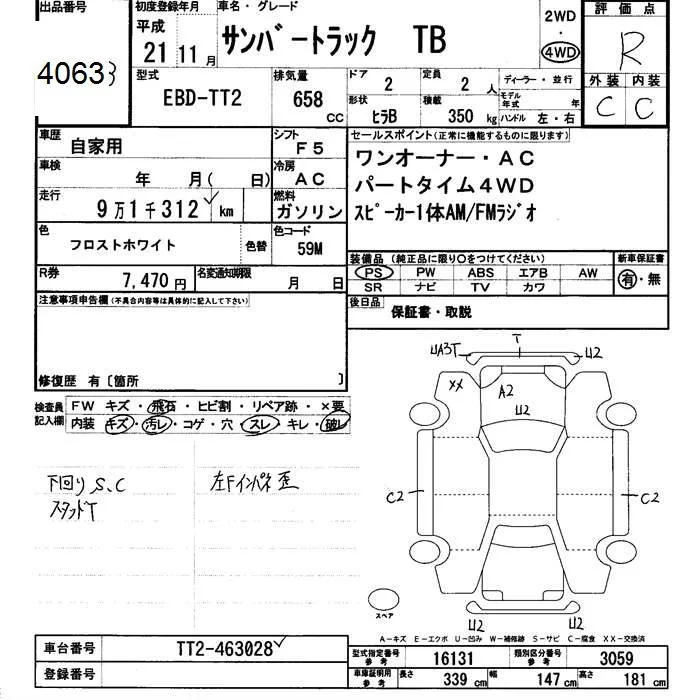 出品番号 初度登録年月 車名・グレード 評価点
40633 平成 21 11月 サンバートラック TB 2WD・4WD R
型式 排気量 ドア 定員 ディーラー・並行 外装 内装
EBD-TT2 658 CC 2 2 人 モデル年式 年 C C
形状 積載 ハンドル 左・右
ヒラB 350 kg
車歴 自家用 シフト F5 セールスポイント(正常に機能するものに限ります)
車検 年 月( 日) 冷房 AC ワンオーナー・AC
走行 9万1千312 km 燃料 ガソリン パートタイム4WD
スピーカー1体AM/FMラジオ
色 フロストホワイト 色替 色コード 59M
装備品(純正品に限り○をつけてください) 新車保証書
PS PW ABS エアB AW 有・無
SR ナビ TV カワ
R券 7,470円 名変通知期限 月 日
注意事項申告欄(不具合内容等は具体的に記入して下さい) 後日品 保証書・取説
修復歴 有〔箇所 〕
検査員記入欄 FW キズ・飛石・ヒビ割・リペア跡・×要
内装 キズ・汚レ・コゲ・穴・スレ・キレ・破レ
下回りS、C 左Fインパネ歪
スタッドT
UA3T T U2
XX A2
U2
C2 C2
U2 U2
スペア
A-キズ E-エクボ U-凹み W-補修跡 S-サビ C-腐食 XX-交換済
車台番号 TT2-463028
登録番号
型式指定番号 参考 16131 類別区分番号 参考 3059
車庫証明用 参考 長さ 339 cm 幅 147 cm 高さ 181 cm